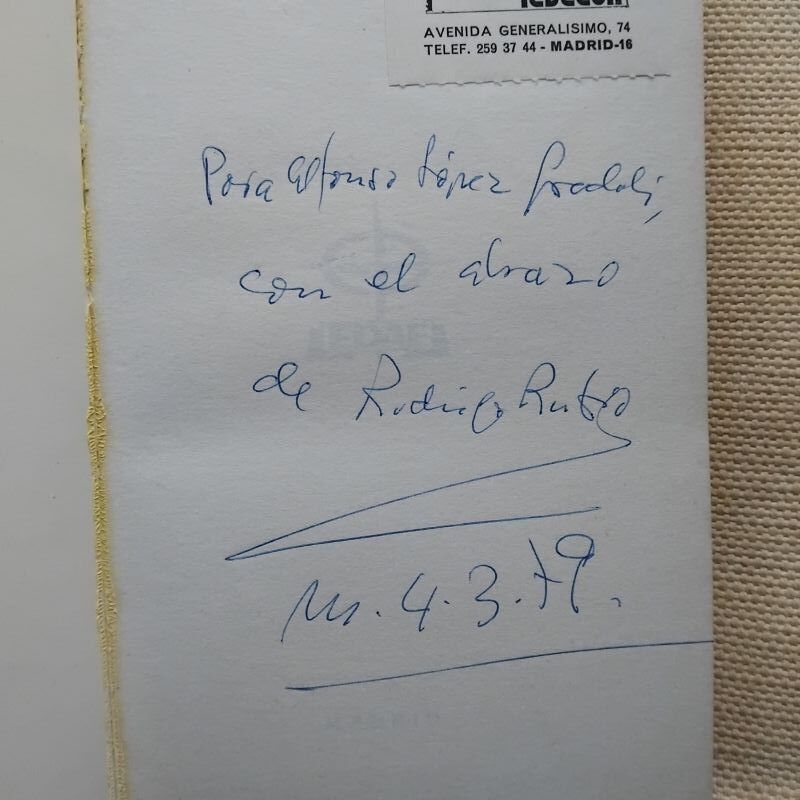 AVENIDA GENERALISIMO, 74
TELEF. 259 37 44 - MADRID-16
Para Alfonso López Gradolí,
con el abrazo
de Rodrigo Rubio
M. 4.3.79.